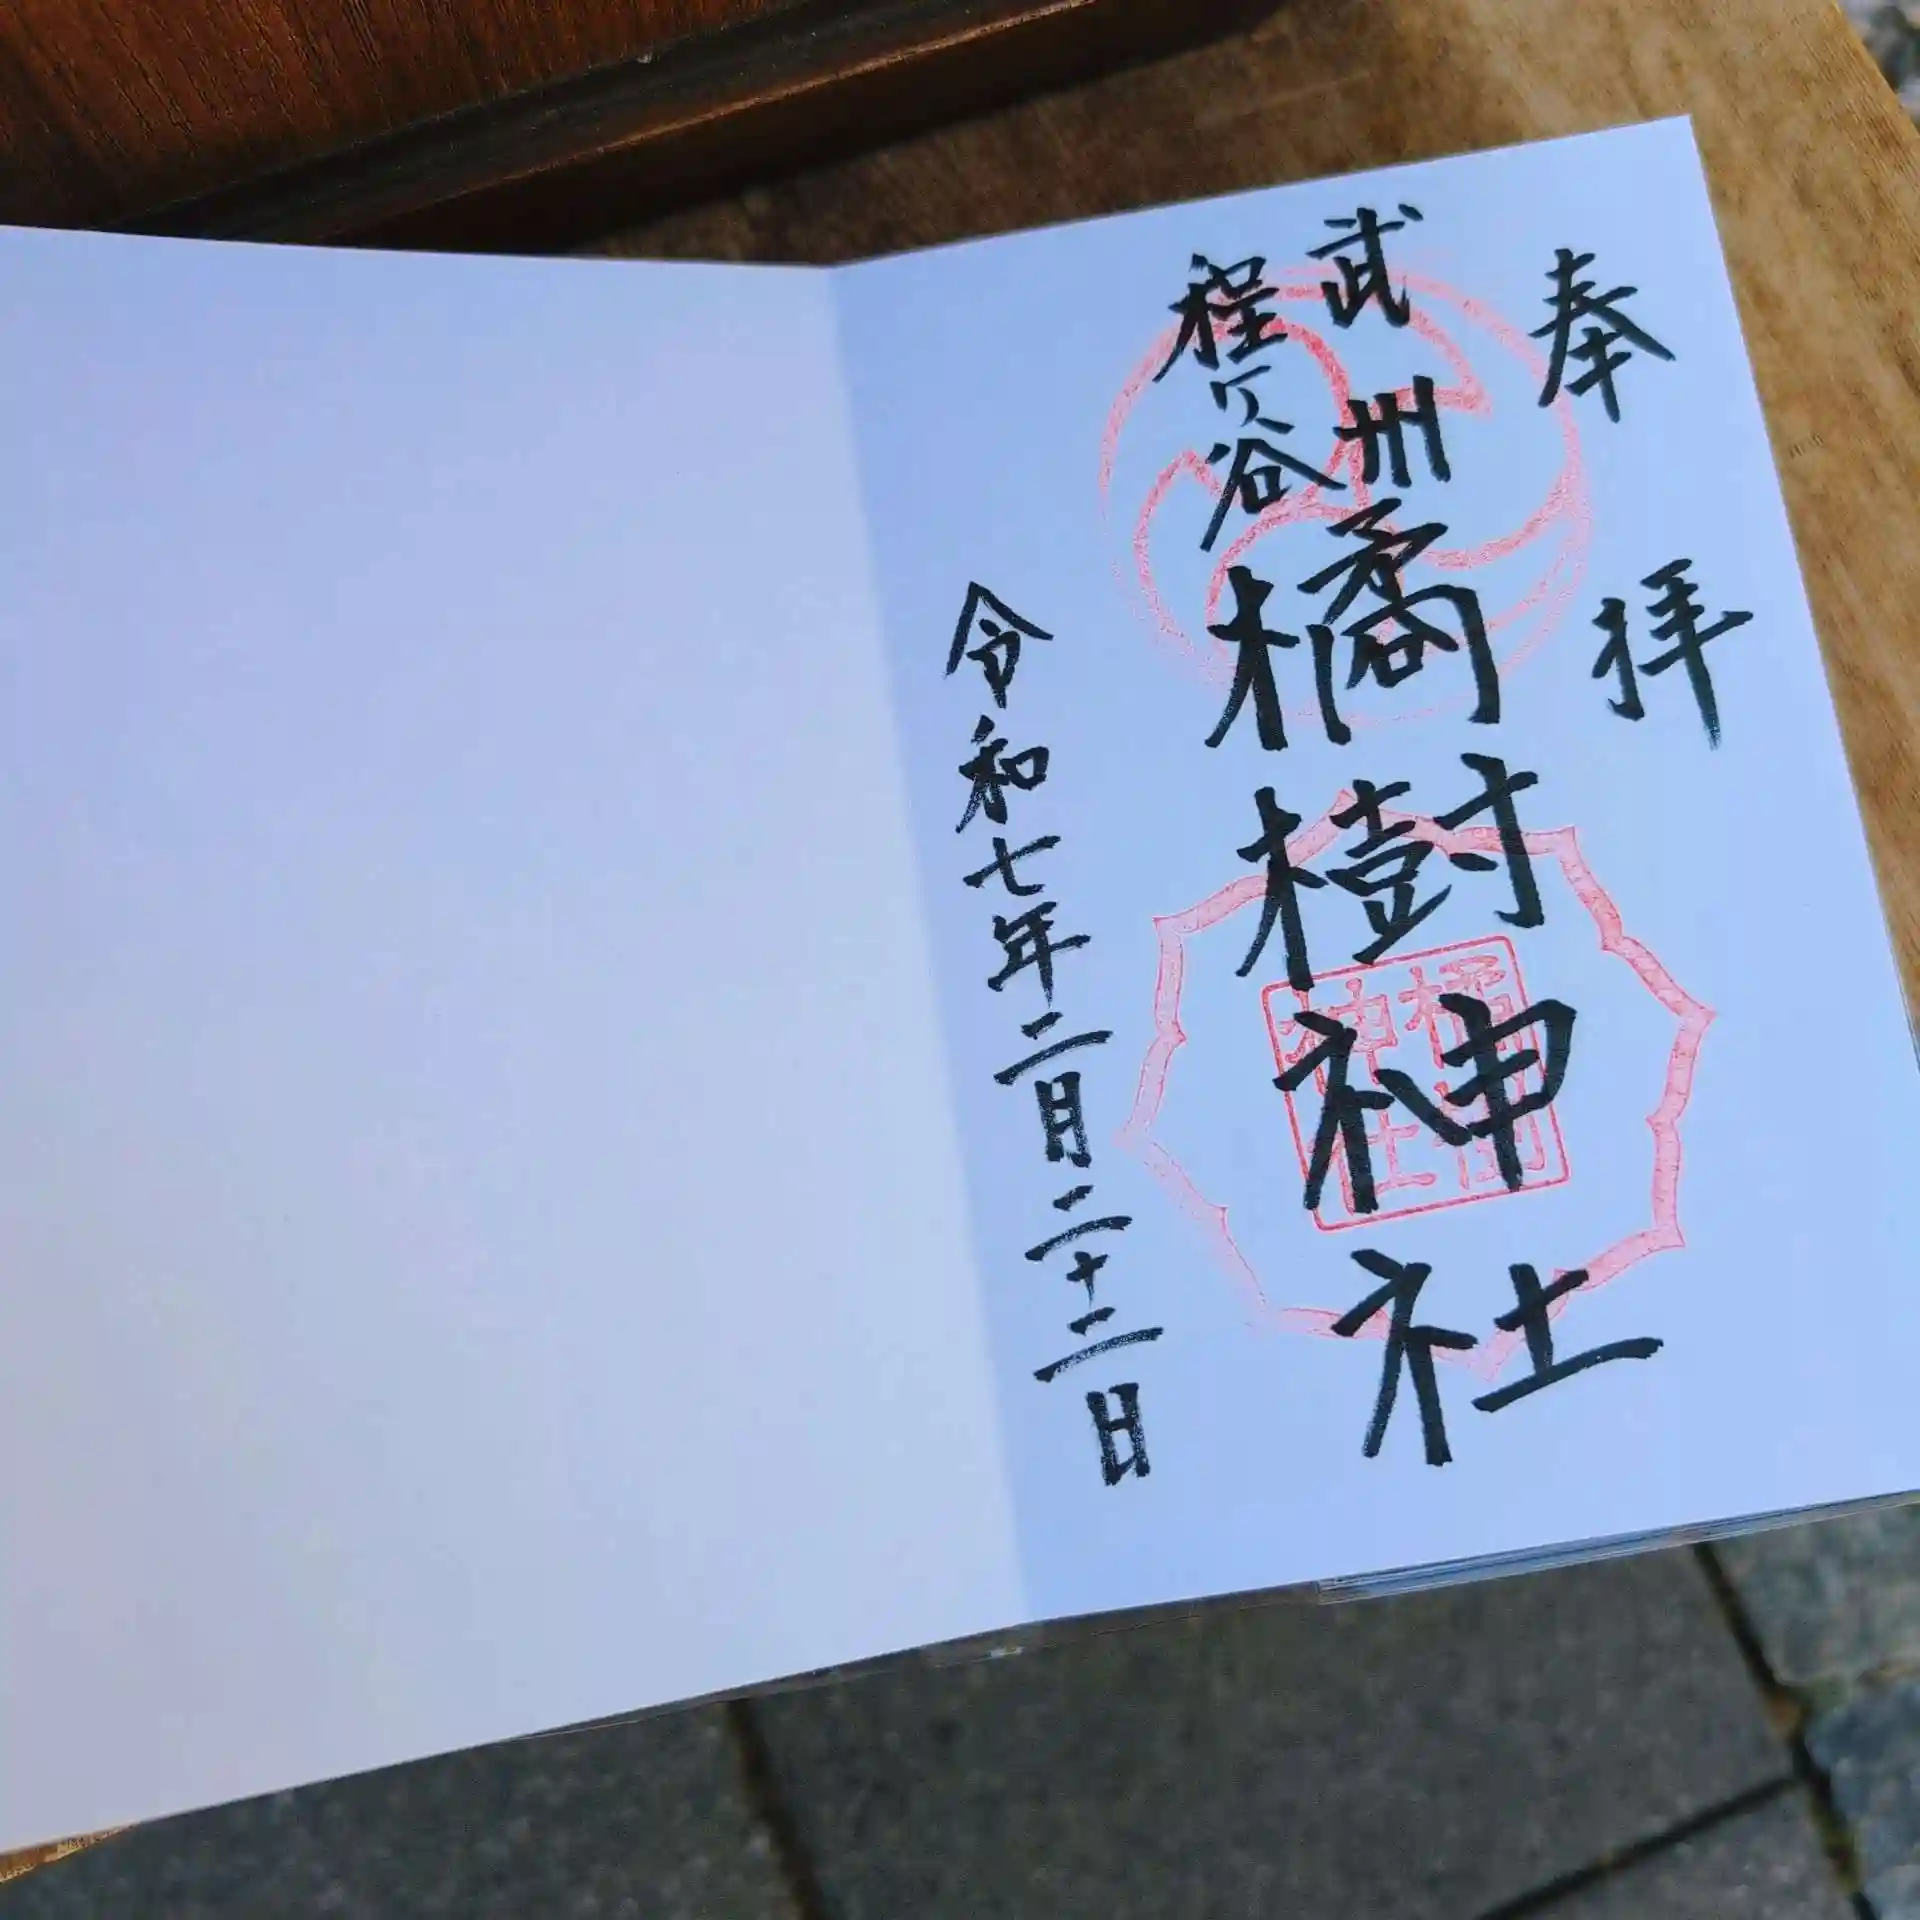 奉拝
武州
程ケ谷
橘樹神社
橘樹
神社
令和七年二月二十二日